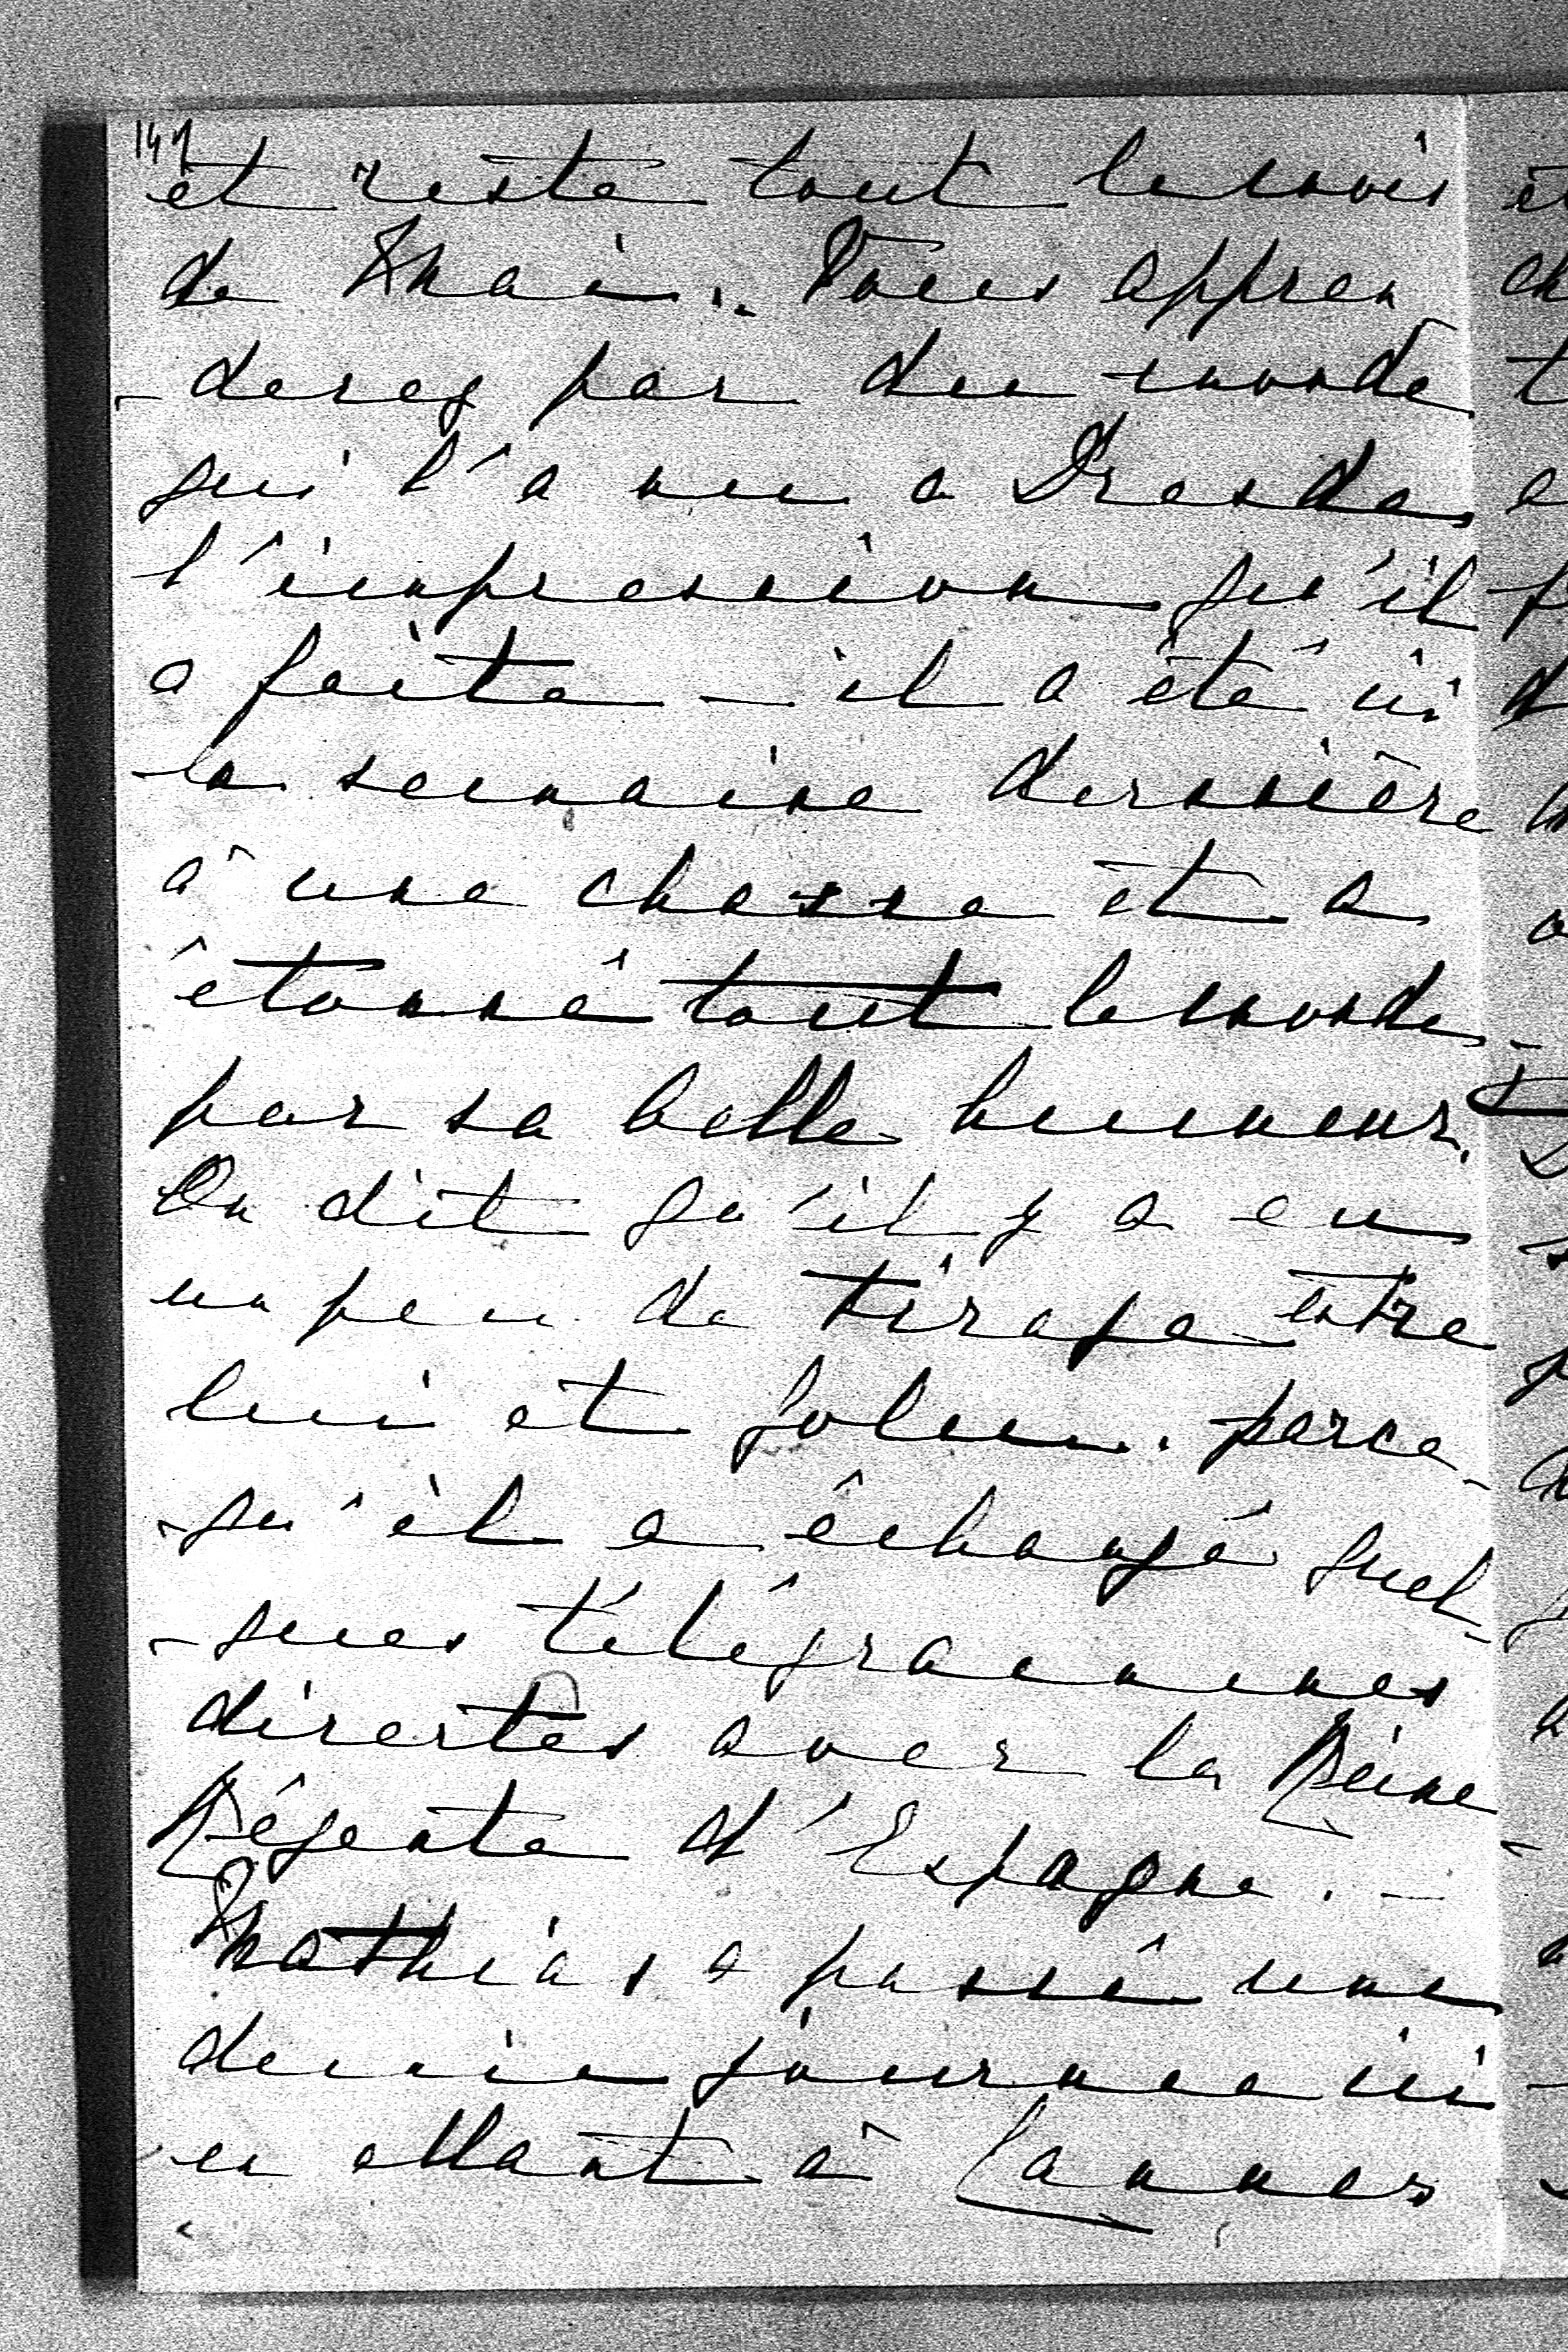 147
et reste tout le mois
de Mai. Vous appren
-derez par du monde
qui l'a vu a Dresde
l'impression qu'il
a faite - il a été ici
la semaine dernière
à une chasse et a
étonné tout le monde
par sa belle humeur.
On dit qu'il y a eu
un peu de tirage entre
lui et Goluch. parce-
-qu'il a échangé quel-
-ques télégrammes
directes avec la Reine
Régente d'Espagne. -
Mathias a passé une
demie journee ici
en allant à Cannes